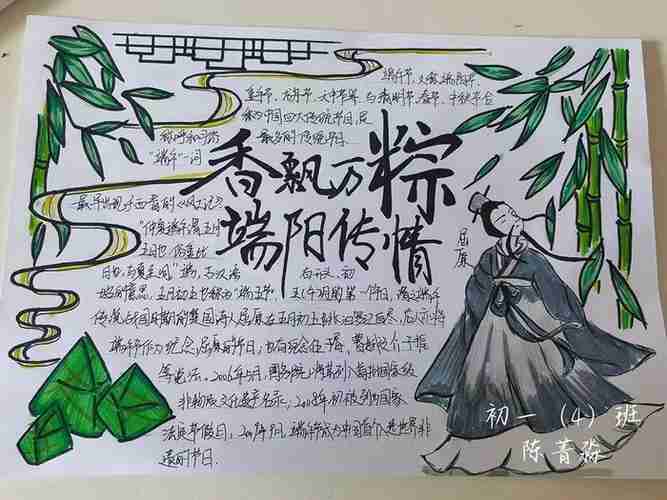 端午节，又称端阳节、
重午节、龙舟节、天中节等，与春节、清明节、中秋节合
称为中国四大传统节日，是
最多的传统节日。
"端午"一词
香飘万粽
端阳传情
屈原
最早出现于西晋的《风土记》
"仲夏端午谓五月
五日也，俗重此
日也，与夏至同"端，古汉语 有开头、初
始的意思，五月初五也称为"端五节"，
传说战国时期的楚国诗人屈原在五月初五
端午节作为纪念屈原的节日；也有纪念伍子胥、曹娥及介子推
等说法。2006年5月，国务院将其列入首批国家级
非物质文化遗产名录；2008年初被列为国家
法定节假日；2009年9月，端午节成为中国首个入选世界非
遗的节日。
初一（4）班
陈菁淼